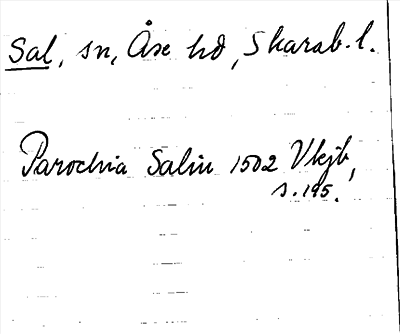 Sal, sn, Åse hd, Skarab. l.
Parochia Salin 1502 Vkjb,
s. 195.